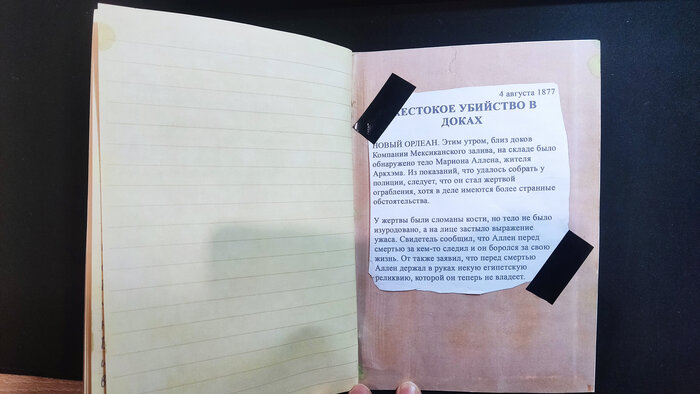 4 августа 1877
ЖЕСТОКОЕ УБИЙСТВО В
ДОКАХ
НОВЫЙ ОРЛЕАН. Этим утром, близ доков
Компании Мексиканского залива, на складе было
обнаружено тело Мариона Аллена, жителя
Аркхэма. Из показаний, что удалось собрать у
полиции, следует, что он стал жертвой
ограбления, хотя в деле имеются более странные
обстоятельства.
У жертвы были сломаны кости, но тело не было
изуродовано, а на лице застыло выражение
ужаса. Свидетель сообщил, что Аллен перед
смертью за кем-то следил и он боролся за свою
жизнь. От также заявил, что перед смертью
Аллен держал в руках некую египетскую
реликвию, которой он теперь не владеет.